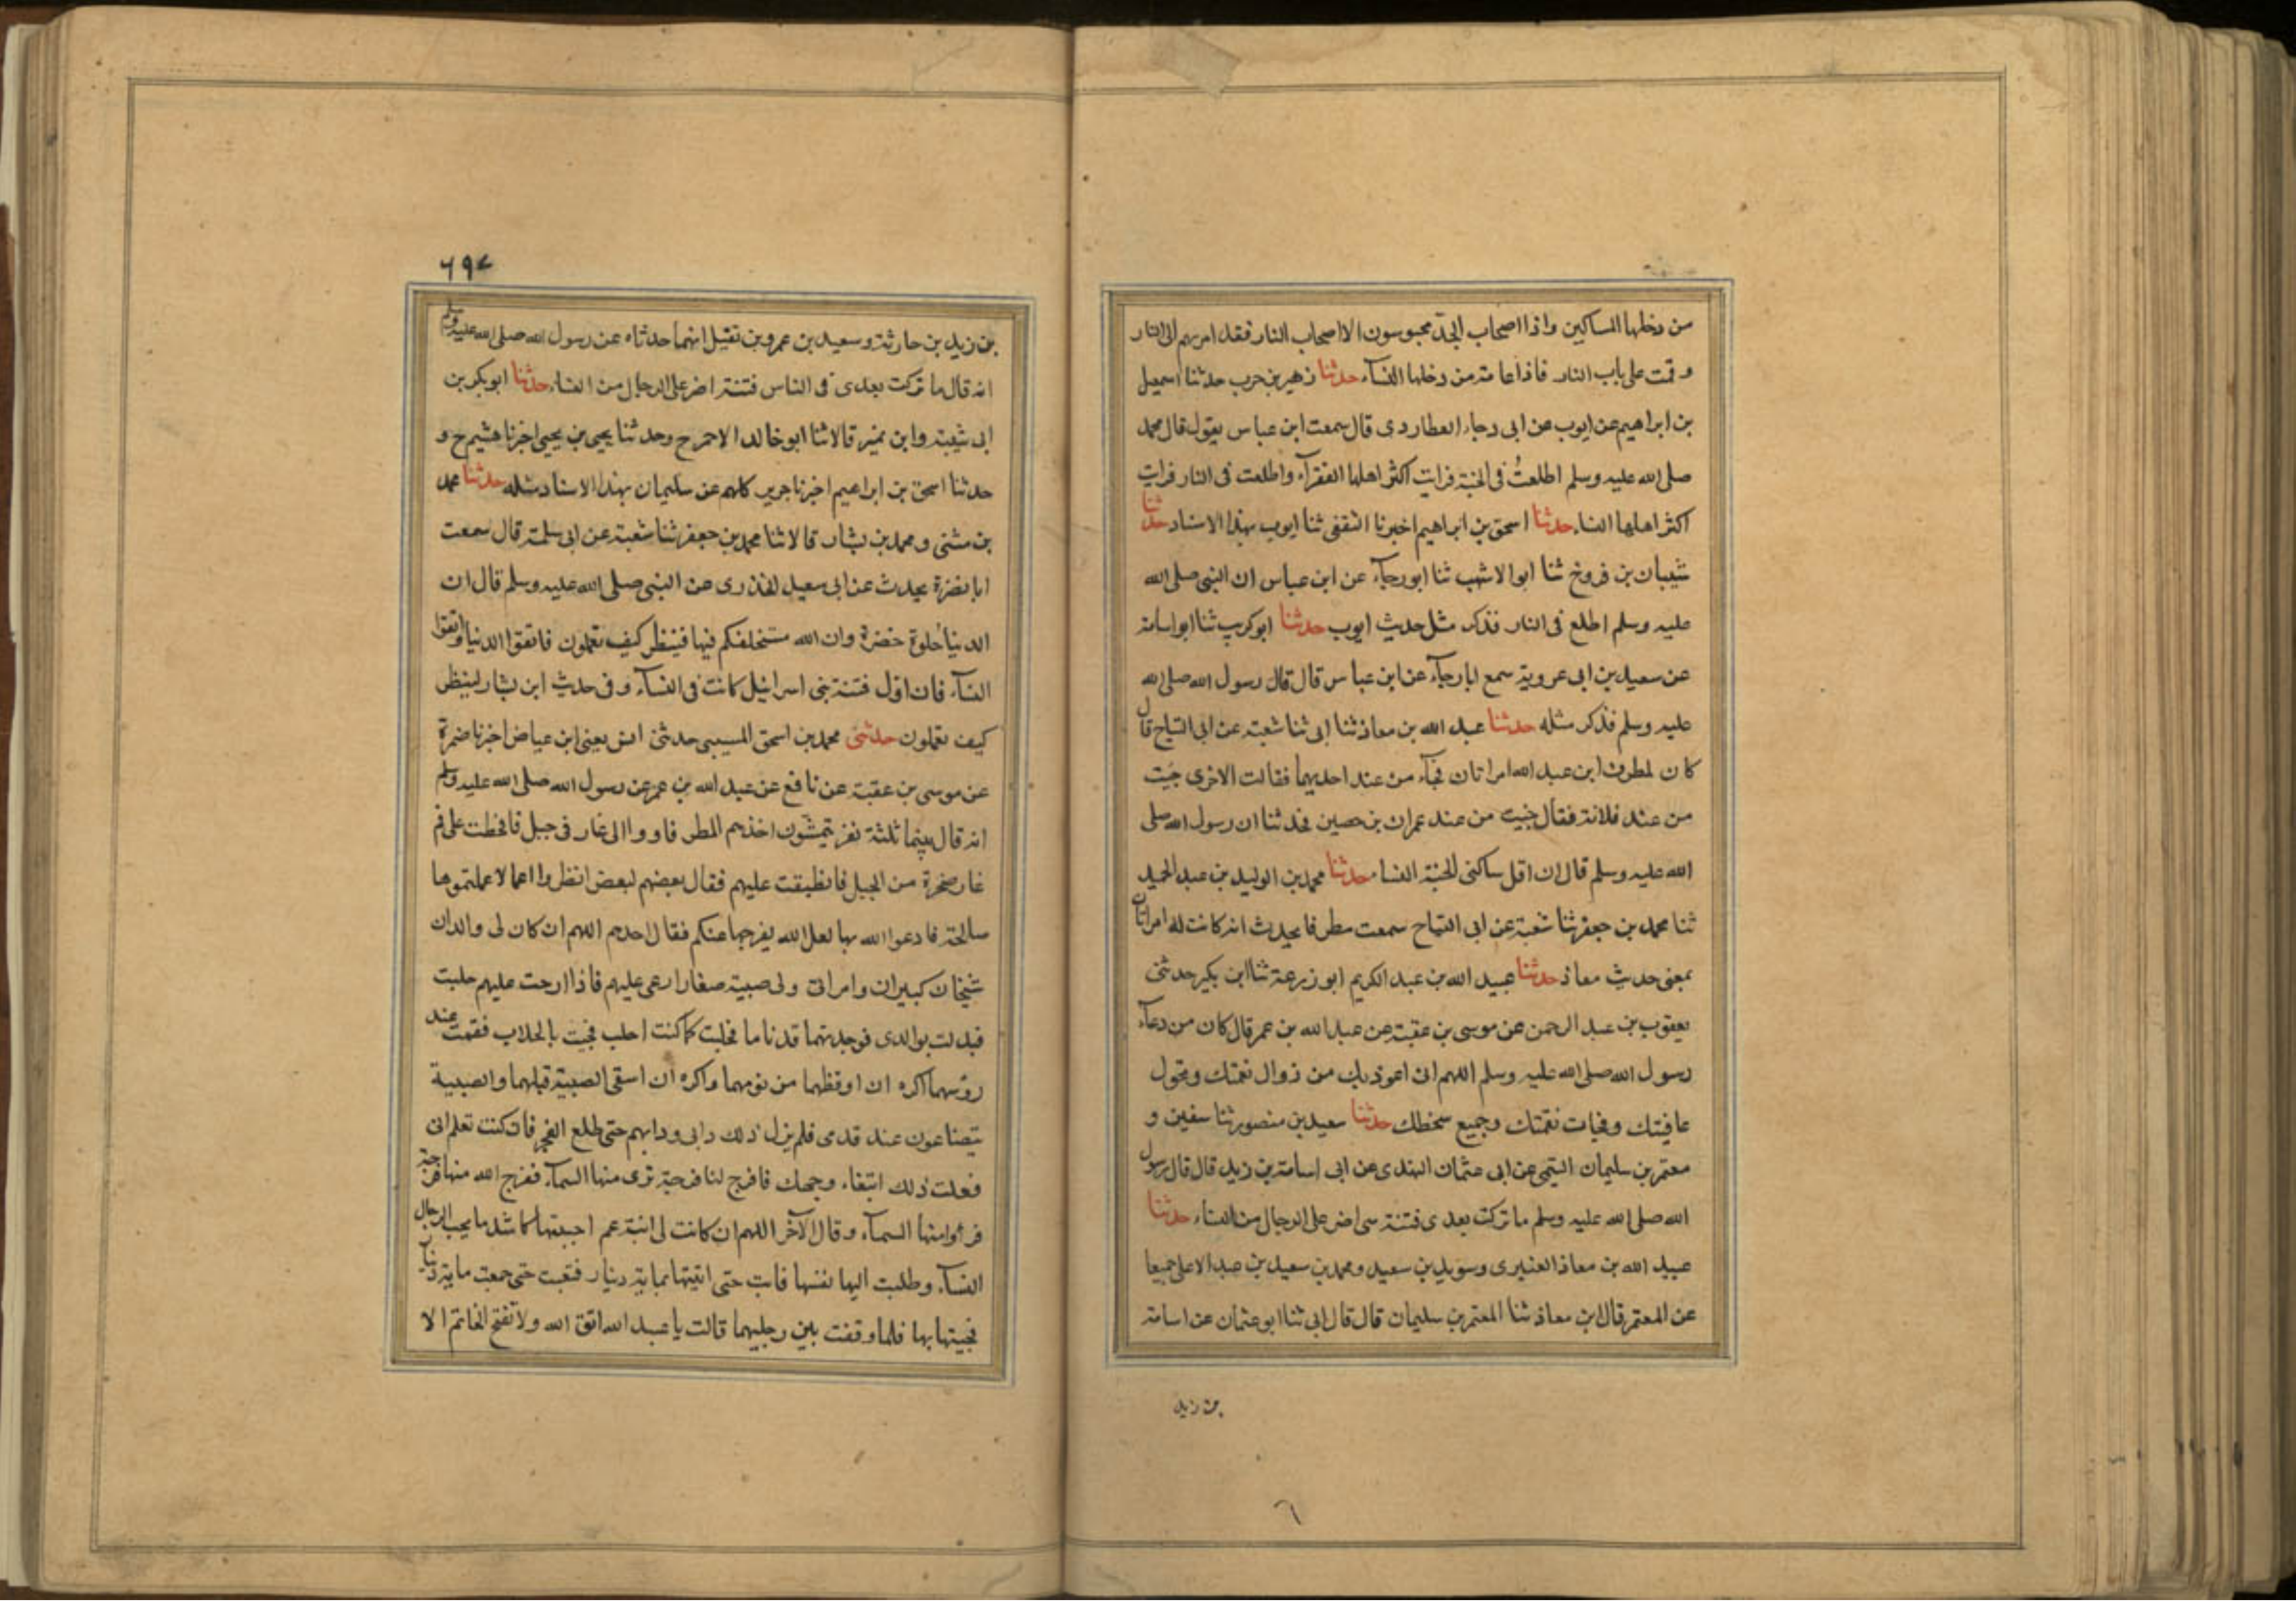 من دخلها المساكين واذا اصحاب الجد محبوسون الا اصحاب النار فقد امر بهم الى النار
وقمت على باب النار فاذا عامة من دخلها النسآء حدثنا زهير بن حرب حدثنا اسمعيل
بن ابراهيم عن ايوب عن ابى رجاء العطاردى قال سمعت ابن عباس يقول قال محمد
صلى الله عليه وسلم اطلعتُ فى الجنة فرايت اكثر اهلها الفقرآء واطلعت فى النار فرايت
اكثر اهلها النساء حدثنا اسحق بن ابراهيم اخبرنا الثقفى ثنا ايوب بهذا الاسناد حدثنا
شيبان بن فروخ ثنا ابو الاشهب ثنا ابو رجآء عن ابن عباس ان النبى صلى الله
عليه وسلم اطلع فى النار فذكر مثل حديث ايوب حدثنا ابو كريب ثنا ابو اسامة
عن سعيد بن ابى عروبة سمع ابا رجآء عن ابن عباس قال قال رسول الله صلى الله
عليه وسلم فذكر مثله حدثنا عبيد الله بن معاذ ثنا ابى ثنا شعبة عن ابى التياح قال
كان لمطرف ابن عبد الله امراتان فجآء من عند احديهما فقالت الاخرى جئت
من عند فلانة فقال جئت من عند عمران بن حصين فحدثنا ان رسول الله صلى
الله عليه وسلم قال ان اقل ساكنى الجنة النسا حدثنا محمد بن الوليد بن عبد الحميد
ثنا محمد بن جعفر ثنا شعبة عن ابى التياح سمعت مطرفا يحدث انه كانت له امراتان
بمعنى حديث معاذ حدثنا عبيد الله بن عبد الكريم ابو زرعة ثنا ابن بكير حدثنى
يعقوب بن عبد الرحمن عن موسى بن عقبة عن عبد الله بن عمر قال كان من دعآء
رسول الله صلى الله عليه وسلم اللهم انى اعوذ بك من زوال نعمتك وتحول
عافيتك وفجات نقمتك وجميع سخطك حدثنا سعيد بن منصور ثنا سفين و
معتمر بن سليمان التيمى عن ابى عثمان الهندى عن ابى اسامة بن زيد قال قال رسول
الله صلى الله عليه وسلم ما تركت بعدى فتنة هى اضر على الرجال من النساء حدثنا
عبيد الله بن معاذ العنبرى وسويد بن سعيد ومحمد بن سعيد بن عبد الاعلى جميعا
عن المعتمر قال ابن معاذ ثنا المعتمر بن سليمان قال قال ابى ثنا ابو عثمان عن اسامة
بن زيد
٦
٦٩٧
بن زيد بن حارثة وسعيد بن عمرو بن نفيل انهما حدثاه عن رسول الله صلى الله عليه وسلم
انه قال ما تركت بعدى فى الناس فتنة اضر على الرجال من النساء حدثنا ابو بكر بن
ابى شيبة وابن نمير قالا ثنا ابو خالد الاحمر ح وحدثنا يحيى بن يحيى اخبرنا هشيم ح و
حدثنا اسحق بن ابراهيم اخبرنا جرير كلهم عن سليمان بهذا الاسناد مثله حدثنا محمد
بن مثنى ومحمد بن بشار قالا ثنا محمد بن جعفر ثنا شعبة عن ابى سلمة قال سمعت
ابا نضرة يحدث عن ابى سعيد الخدرى عن النبى صلى الله عليه وسلم قال ان
الدنيا حلوة خضرة وان الله مستخلفكم فيها فينظر كيف تعملون فاتقوا الدنيا واتقوا
النسآء فان اول فتنة بنى اسرائيل كانت فى النسآء وفى حديث ابن بشار لينظر
كيف تعملون حدثنى محمد بن اسحق المسيبى حدثنى انس يعنى ابن عياض اخبرنا ضمرة
عن موسى بن عقبة عن نافع عن عبد الله بن عمر عن رسول الله صلى الله عليه وسلم
انه قال بينما ثلثة نفر يتمشون اخذهم المطر فاووا الى غار فى جبل فانحطت على فم
غار صخرة من الجبل فانطبقت عليهم فقال بعضهم لبعض انظروا اعمالا عملتموها
صالحة فادعوا الله بها لعل الله يفرجها عنكم فقال احدهم اللهم ان كان لى والدان
شيخان كبيران وامراتى ولى صبية صغار ارعى عليهم فاذا ارحت عليهم حلبت
فبدات بوالدى فوجدتهما قد ناما فحلبت كما كنت احلب فجئت بالحلاب فقمت عند
رؤسهما اكره ان اوقظهما من نومهما واكره ان اسقى الصبية قبلهما والصبية
يتضاغون عند قدمى فلم يزل ذلك دابى ودابهم حتى طلع الفجر فان كنت تعلم انى
فعلت ذلك ابتغاء وجهك فافرج لنا فرجة نرى منها السمآء ففرج الله منها فرجة
فراوا منها السمآء وقال الآخر اللهم ان كانت لى ابنة عم احببتها كاشد ما يحب الرجال
النسآء وطلبت اليها نفسها فابت حتى اتيتها بماية دينار فتعبت حتى جمعت ماية دينار
فجيتها بها فلما وقفت بين رجليها قالت يا عبد الله اتق الله ولا تفتح الخاتم الا